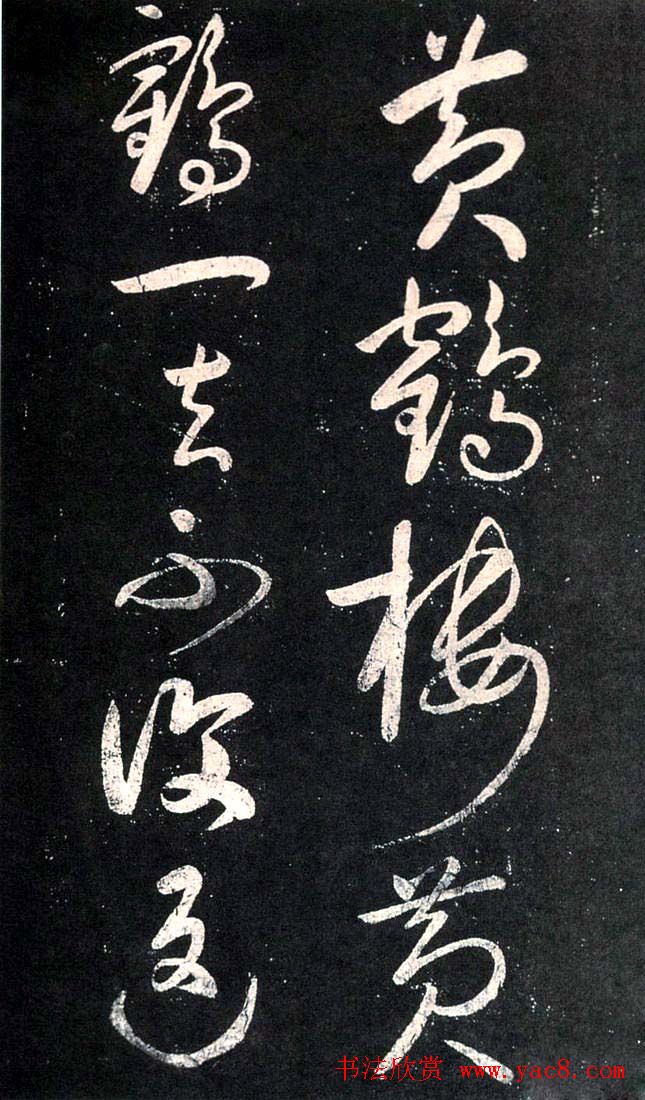 黄鹤楼黄
鹤一去不复返
书法欣赏 www.yac8.com